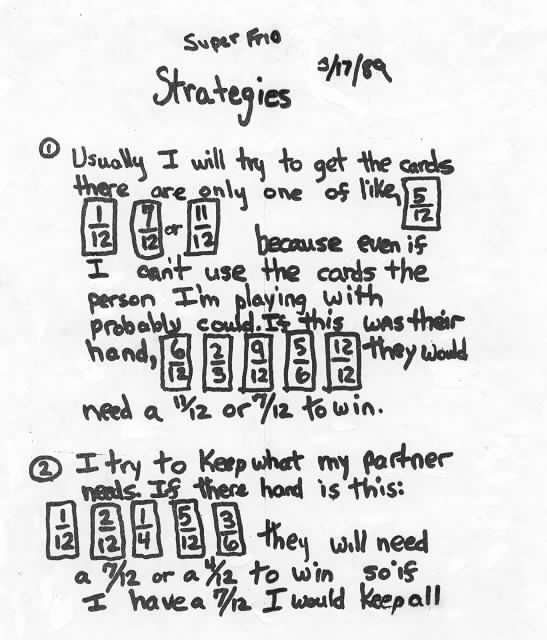 Super Frio
3/17/89
Strategies
① Usually I will try to get the cards
there are only one of like, 5/12
1/12 7/12 or 11/12 because even if
I can't use the cards the
person I'm playing with
probably could. If this was their
hand, 6/12 2/3 9/12 5/6 12/12 they would
need a 11/12 or 7/12 to win.
② I try to keep what my partner
needs. If there hand is this:
1/12 2/12 1/4 5/12 3/6 they will need
a 7/12 or a 4/12 to win so if
I have a 7/12 I would keep all